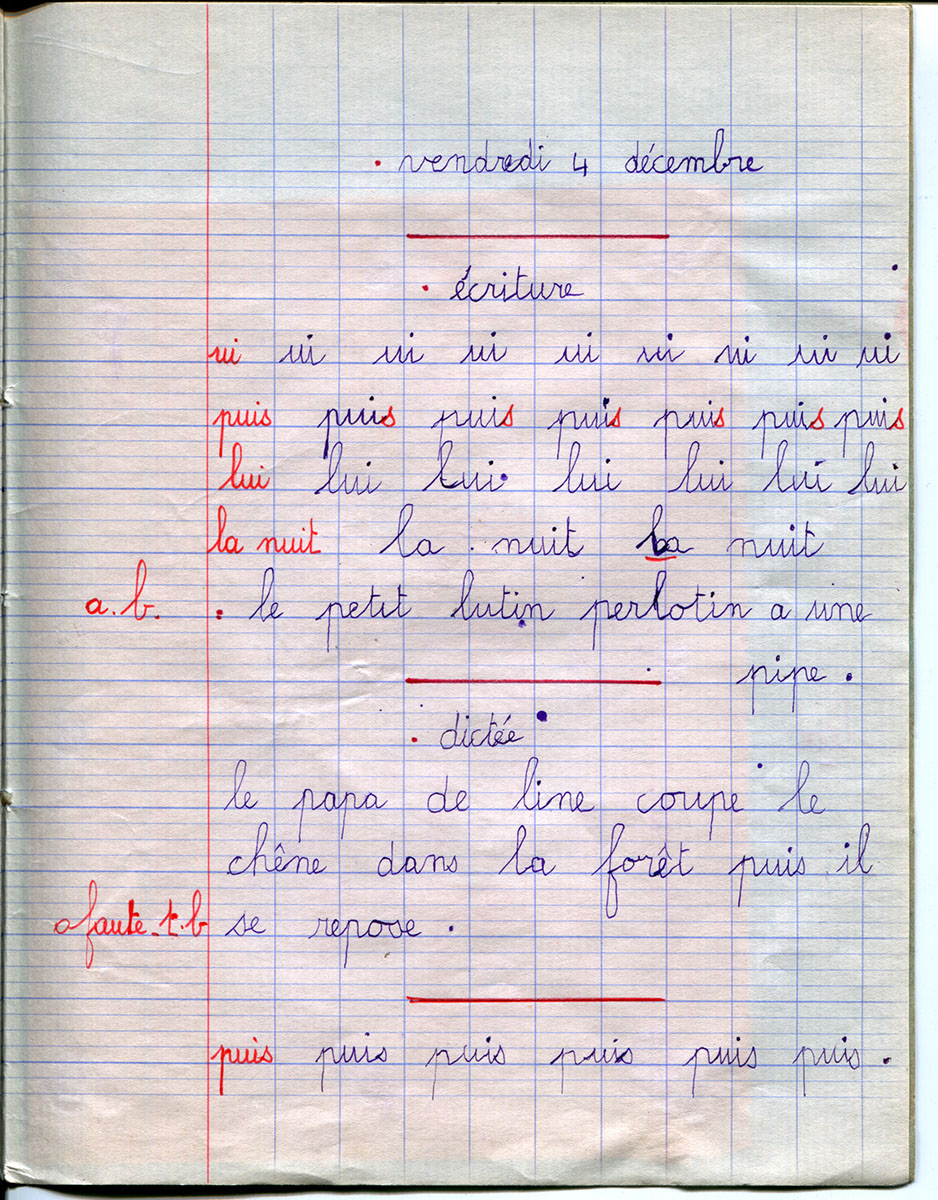 vendredi 4 décembre
écriture
ui ui ui ui ui ui ui ui ui
puis puis puis puis puis puis puis
lui lui lui lui lui lui lui
la nuit la nuit la nuit
a.b. le petit lutin perlotin a une
pipe.
dictée
le papa de line coupe le
chêne dans la forêt puis il
o faute-t.b se repose.
puis puis puis puis puis puis.